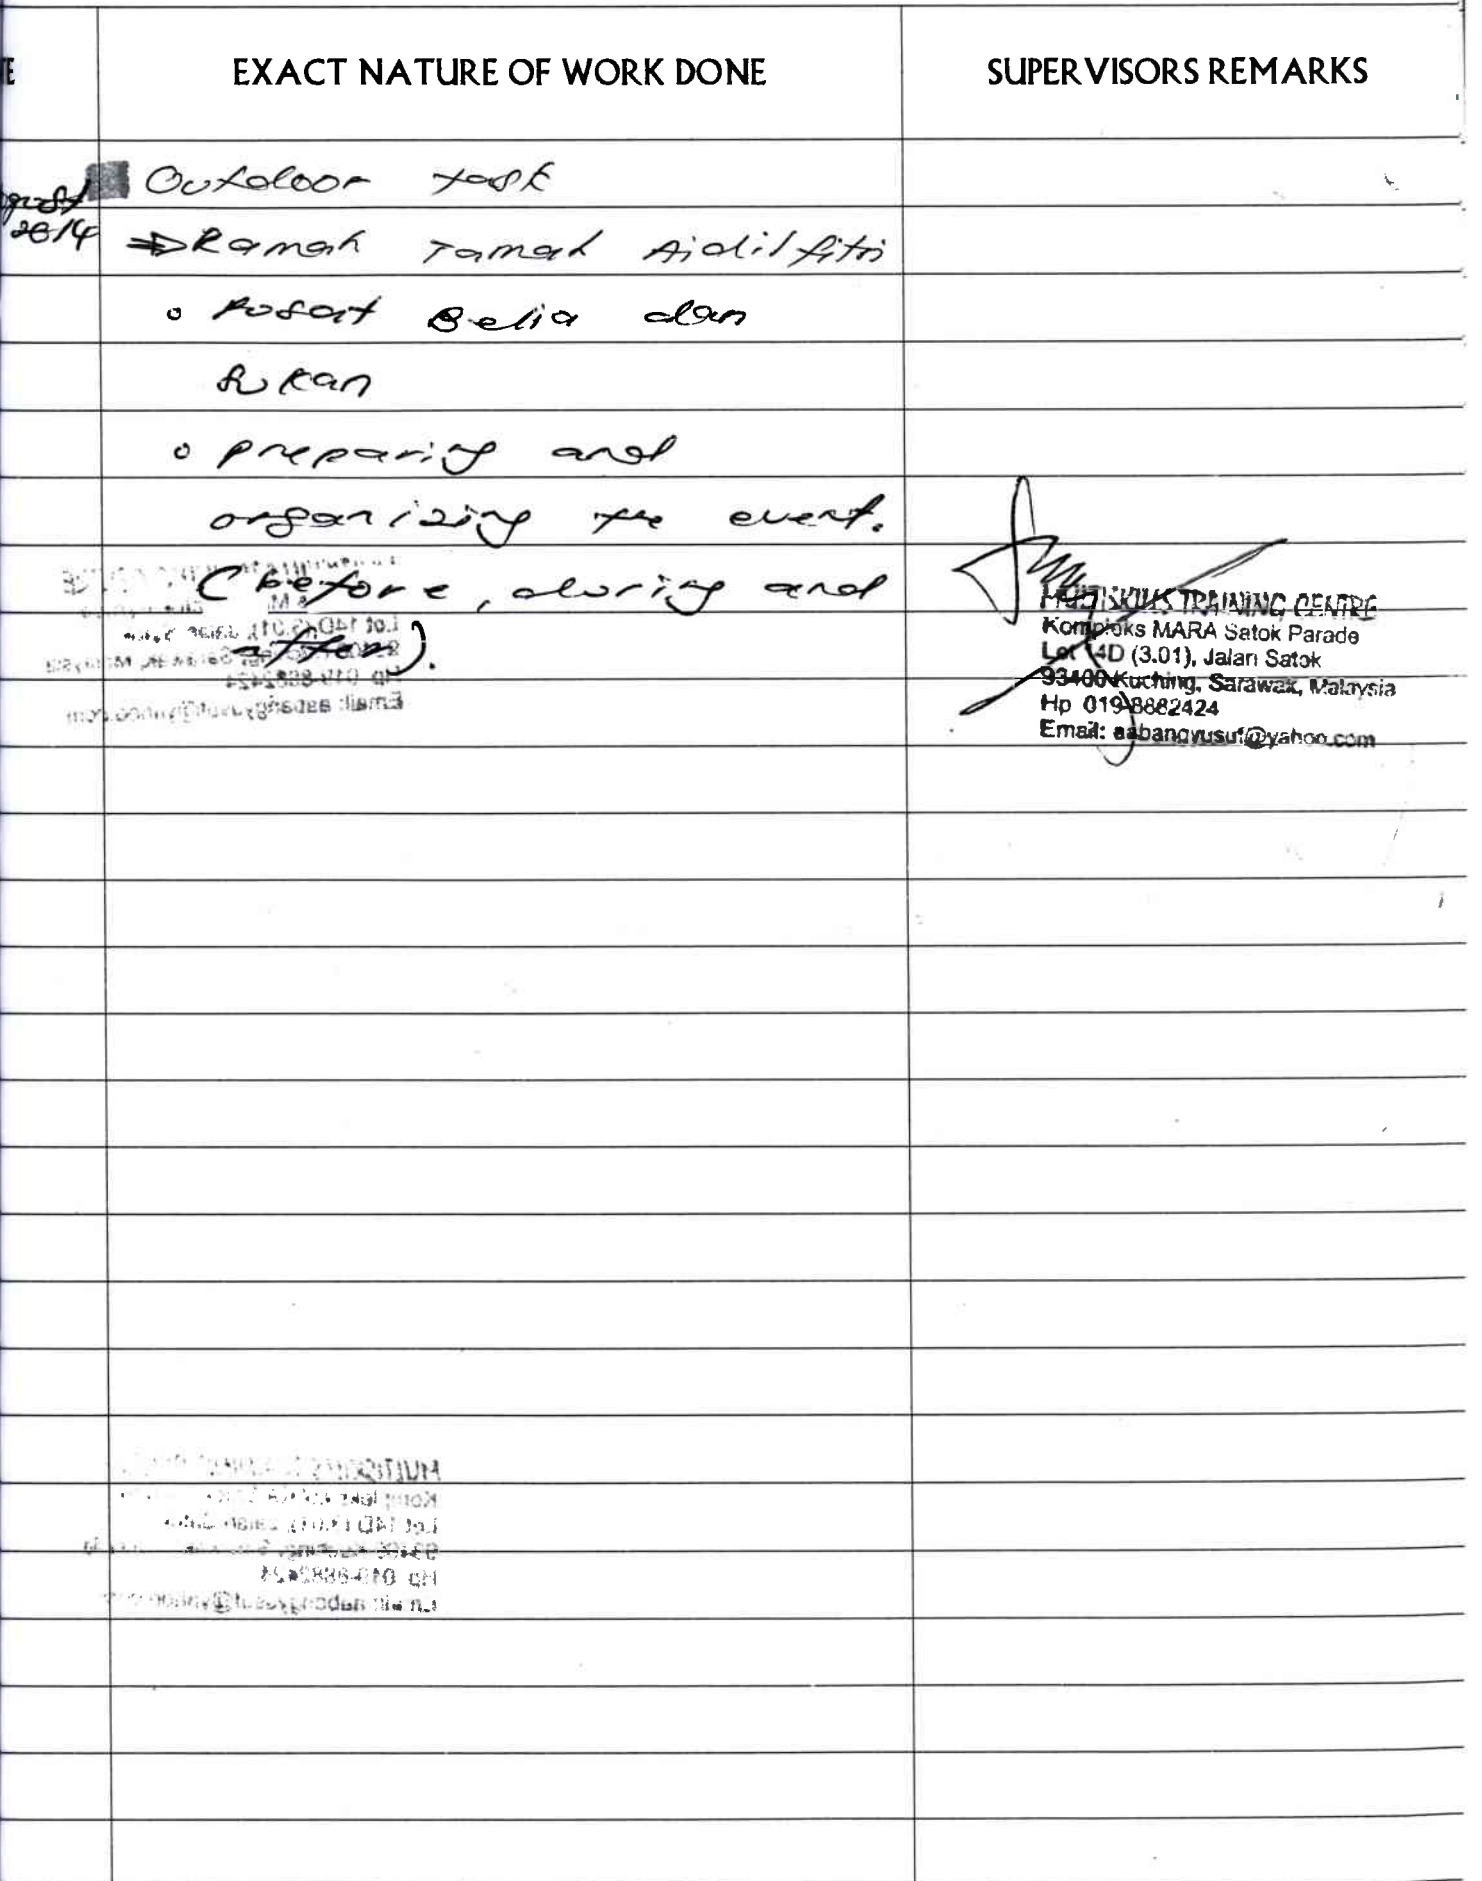 E
EXACT NATURE OF WORK DONE
SUPERVISORS REMARKS
Outdoor task
2014
⇒ Ramah Tamah Aidilfitri
o Pusat Belia dan
Sukan
o preparing and
organizing the event.
(before, during and
after).
MULTISKILLS TRAINING CENTRE
Kompleks MARA Satok Parade
Lot 14D (3.01), Jalan Satok
93400 Kuching, Sarawak, Malaysia
Hp 019-8882424
Email: aabangyusuf@yahoo.com